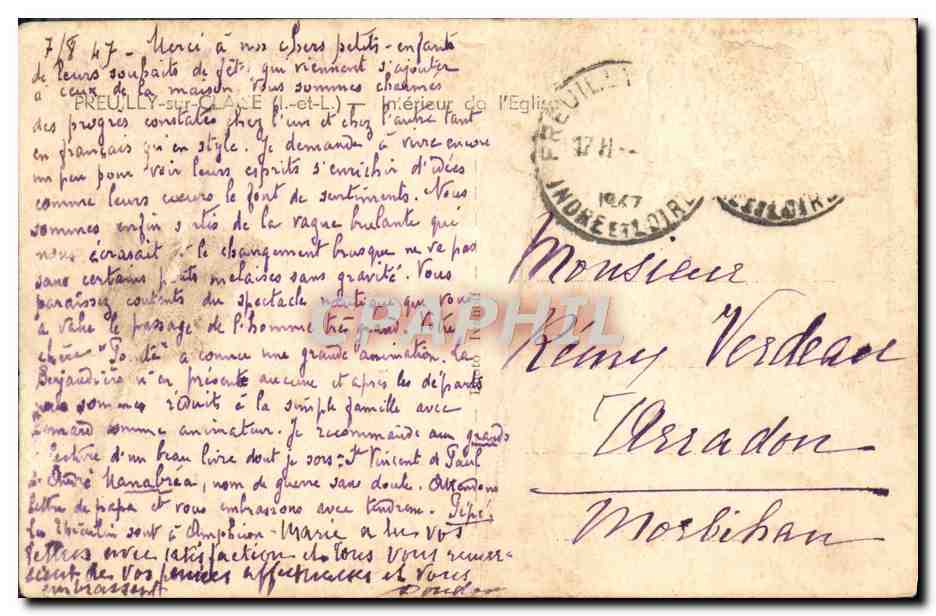 7/8 47 - Merci à nos chers petits-enfants
de leurs souhaits de fête qui viennent s'ajouter
à ceux de la maison. Nous sommes charmés
PREUILLY-sur-CLAISE (I.-et-L.) — Intérieur de l'Eglise
des progrès constatés chez l'un et chez l'autre tant
en français qu'en style. Je demande à vivre encore
un peu pour voir leurs esprits s'enrichir d'idées
comme leurs cœurs le font de sentiments. Nous
sommes enfin sortis de la vague brulante qui
nous écrasait et le changement brusque ne va pas
sans certains petits malaises sans gravité. Vous
paraissez contents du spectacle nautique que vous
a valu le passage de l'homme très grand. Votre
chère a connu une grande animation. La
n'en présente aucune et après les départs
nous sommes réduits à la simple famille avec
comme animateur. Je recommande aux grands
lecture d'un beau livre dont je sors: St Vincent de Paul
d'André, nom de guerre sans doute. Attendons
lettre de papa et vous embrassons avec tendresse. Pépé
Les sont à Amphion - Marie a lu vos
lettres avec satisfaction et tous vous
de vos pensées affectueuses et vous
embrassent
PREUILLY
17 H
1947
INDRE ET LOIRE
ET LOIRE
CPAPHIL
Monsieur
Rémy Verdeau
Arradon
Morbihan